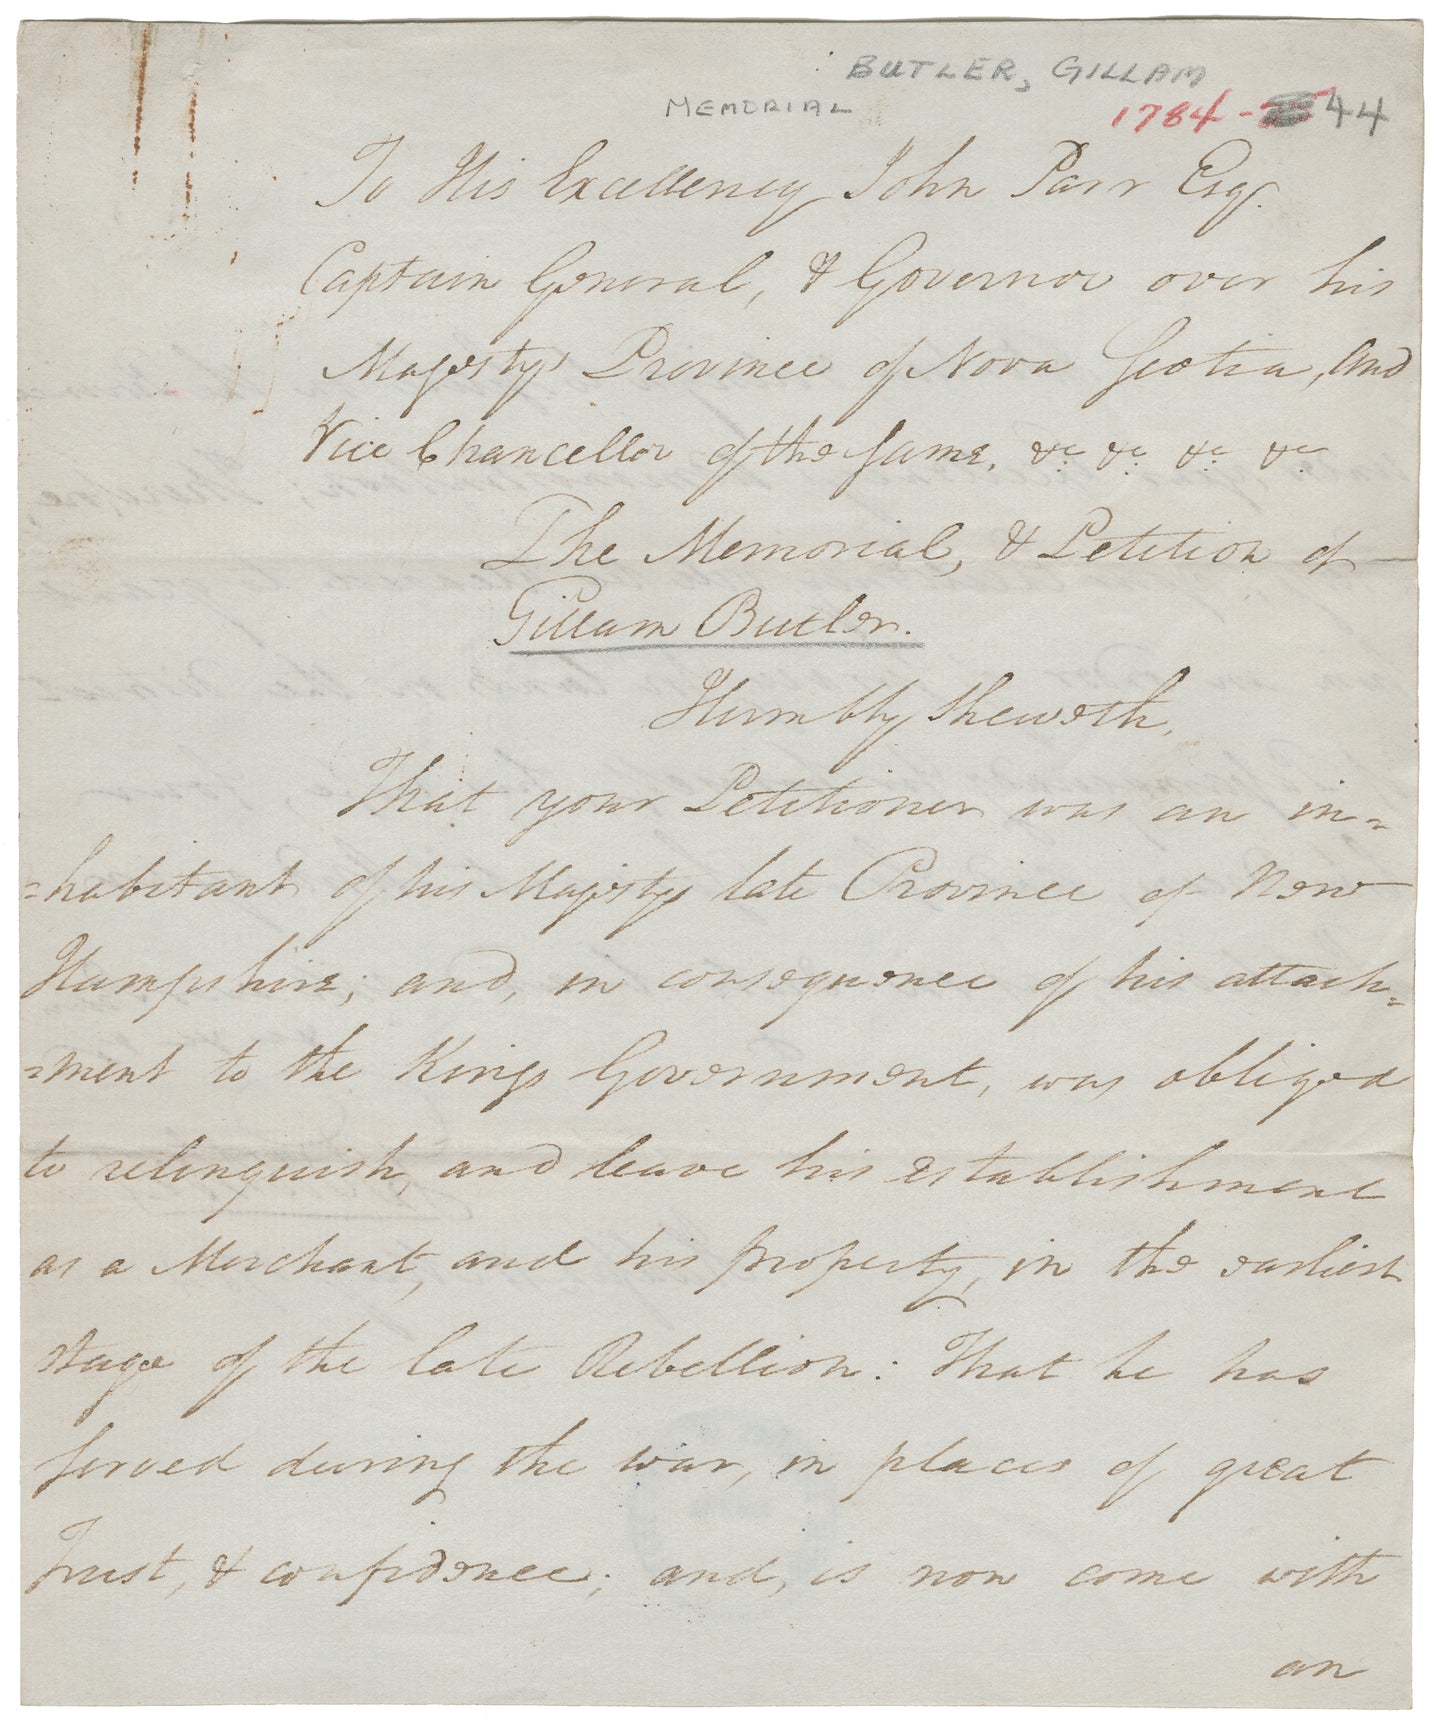 BUTLER, GILLAM
MEMORIAL
1784-44
To His Excellency John Parr Esqr.
Captain General, & Governor over his
Majestys Province of Nova Scotia, and
Vice Chancellor of the same, &c. &c. &c. &c.
The Memorial, & Petition of
Gillam Butler.
Humbly sheweth,
That your Petitioner was an in=
=habitant of his Majestys late Province of New
Hampshire; and, in consequence of his attach=
=ment to the Kings Government, was obliged
to relinquish, and leave his establishment
as a Merchant, and his property, in the earliest
stage of the late Rebellion: That he has
served during the war, in places of great
Trust, & confidence; and, is now come with
an